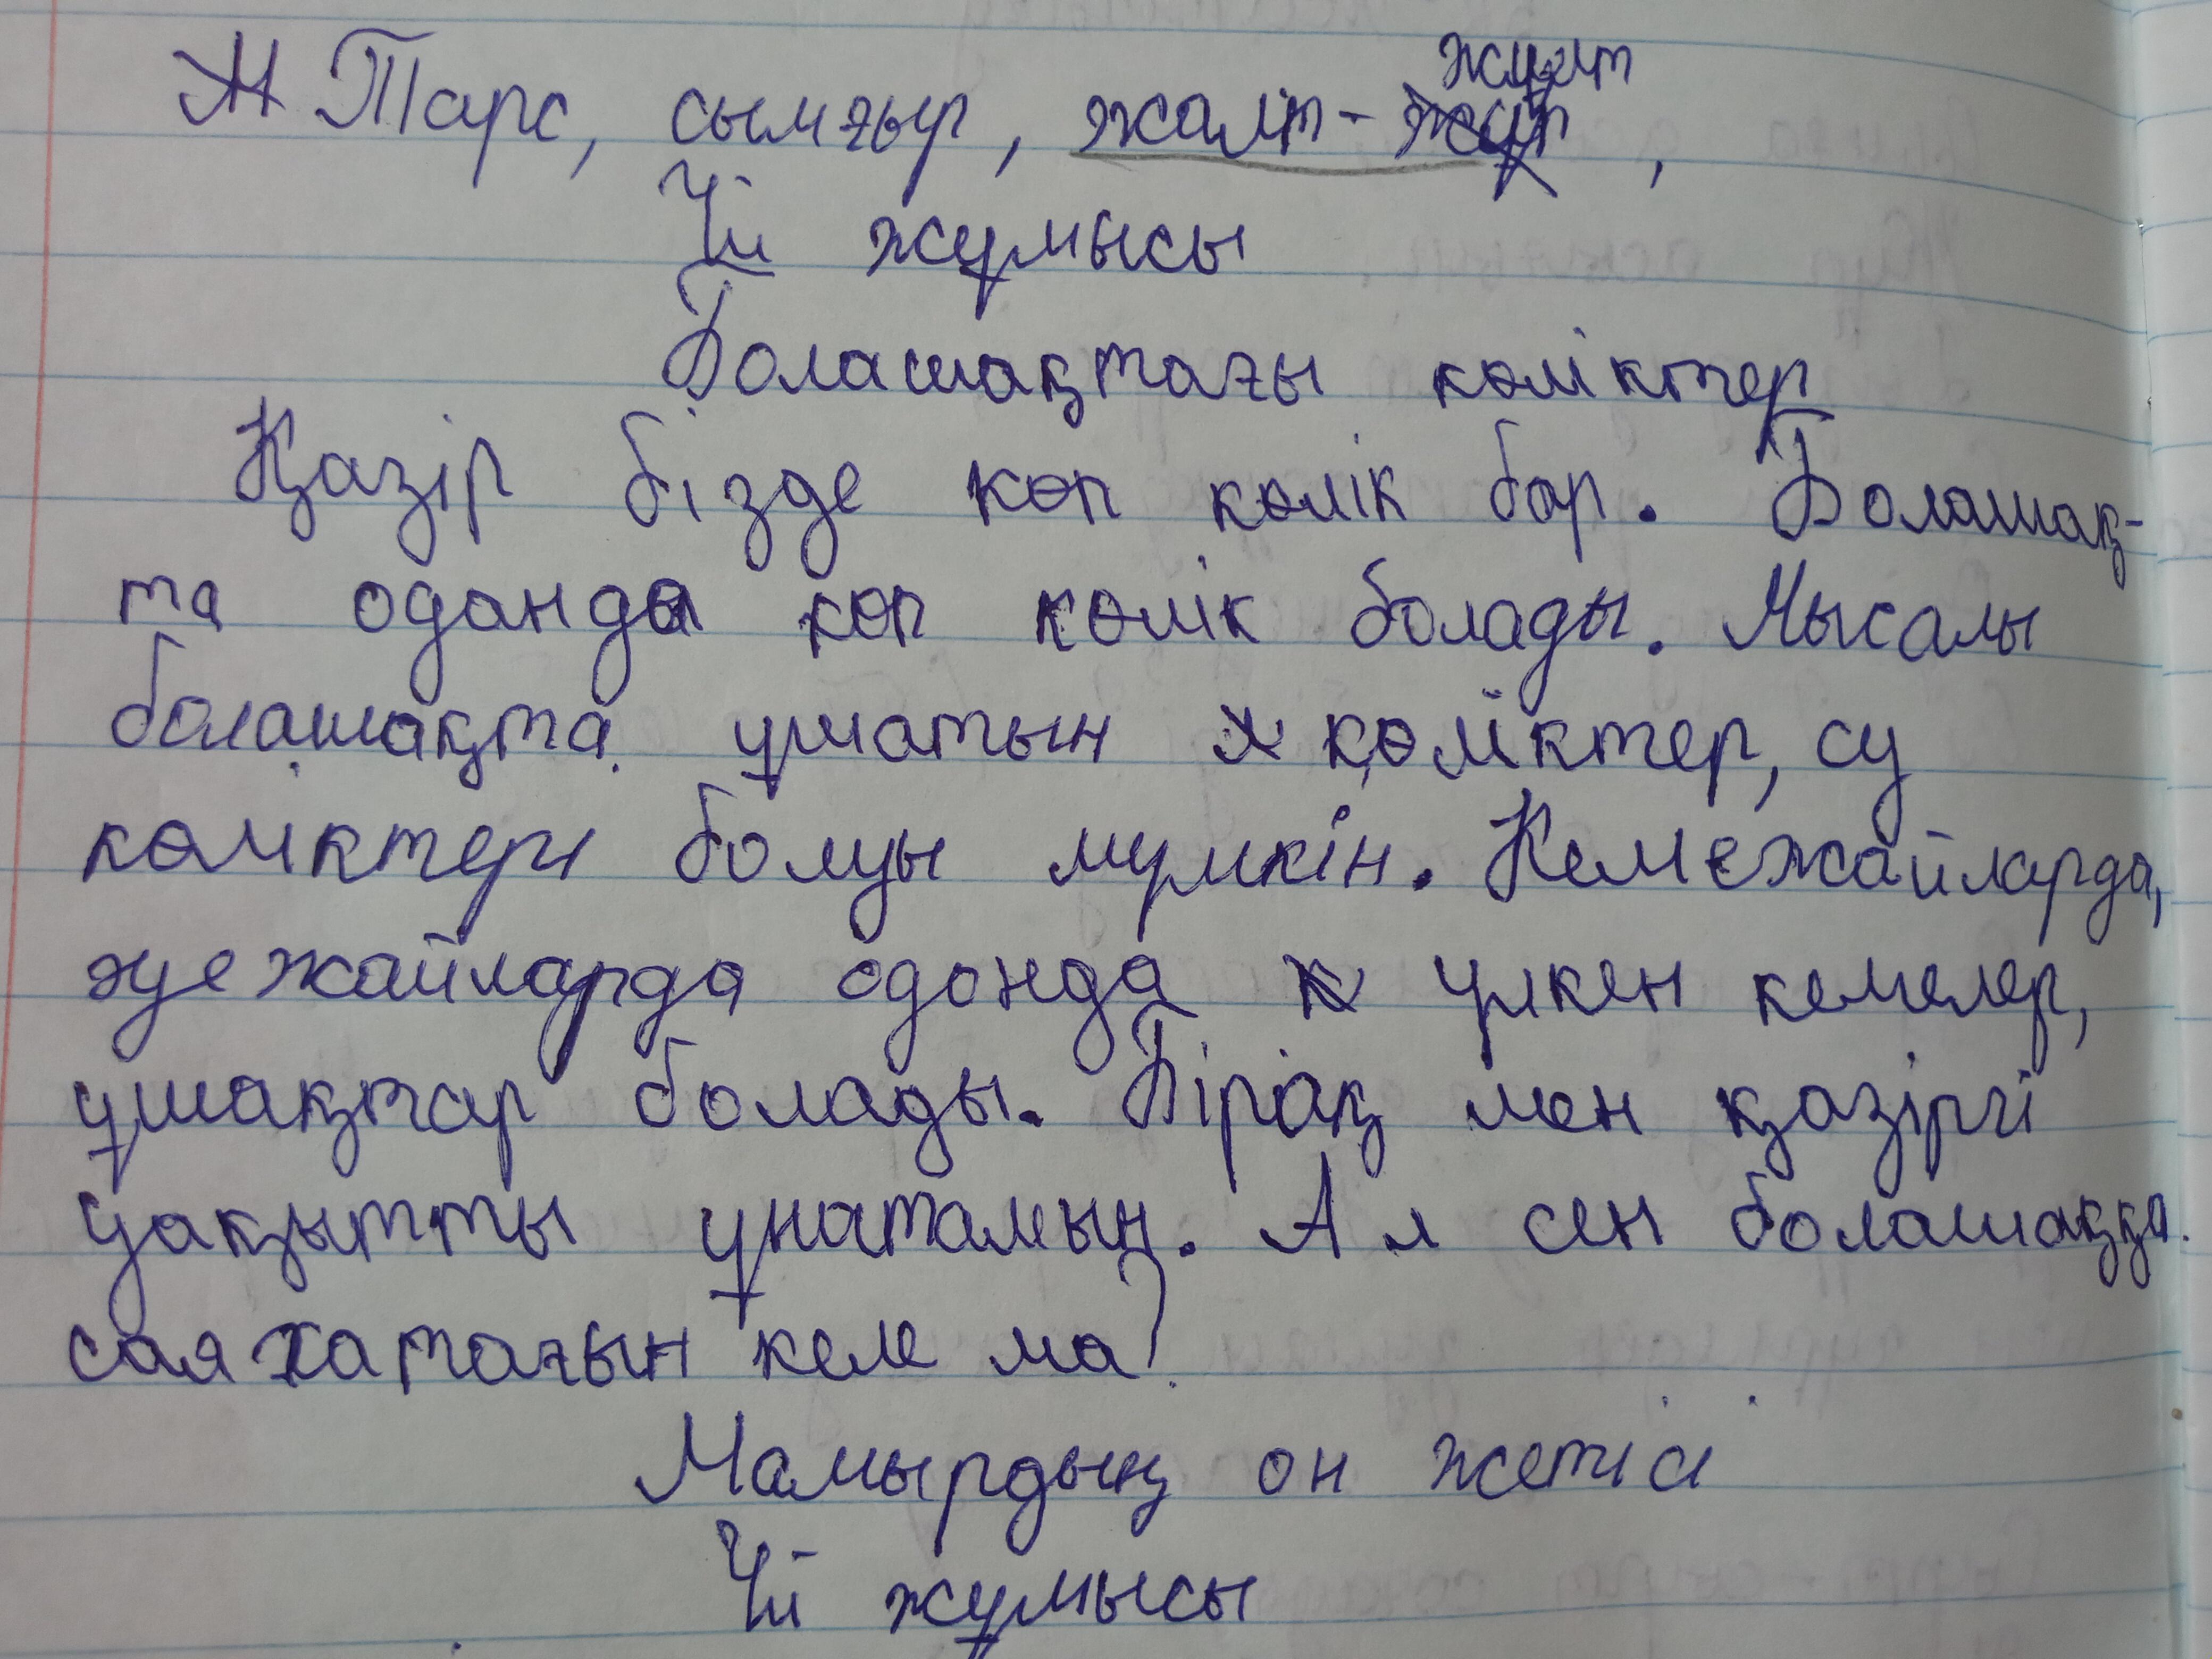 Ж Тарс, сымғыр, жалт-жұлт,
Үй жұмысы
Болашақтағы көліктер
Қазір бізде көп көлік бар. Болашақ-
та оданда көп көлік болады. Мысалы
болашақта ұшатын көліктер, су
көліктері болуы мүмкін. Кемежайларда,
әуежайларда оданда үлкен кемелер,
ұшақтар болады. Бірақ мен қазіргі
уақытты ұнатамын. Ал сен болашаққа
саяхатағын келе ма?
Мамырдың он жетісі
Үй жұмысы